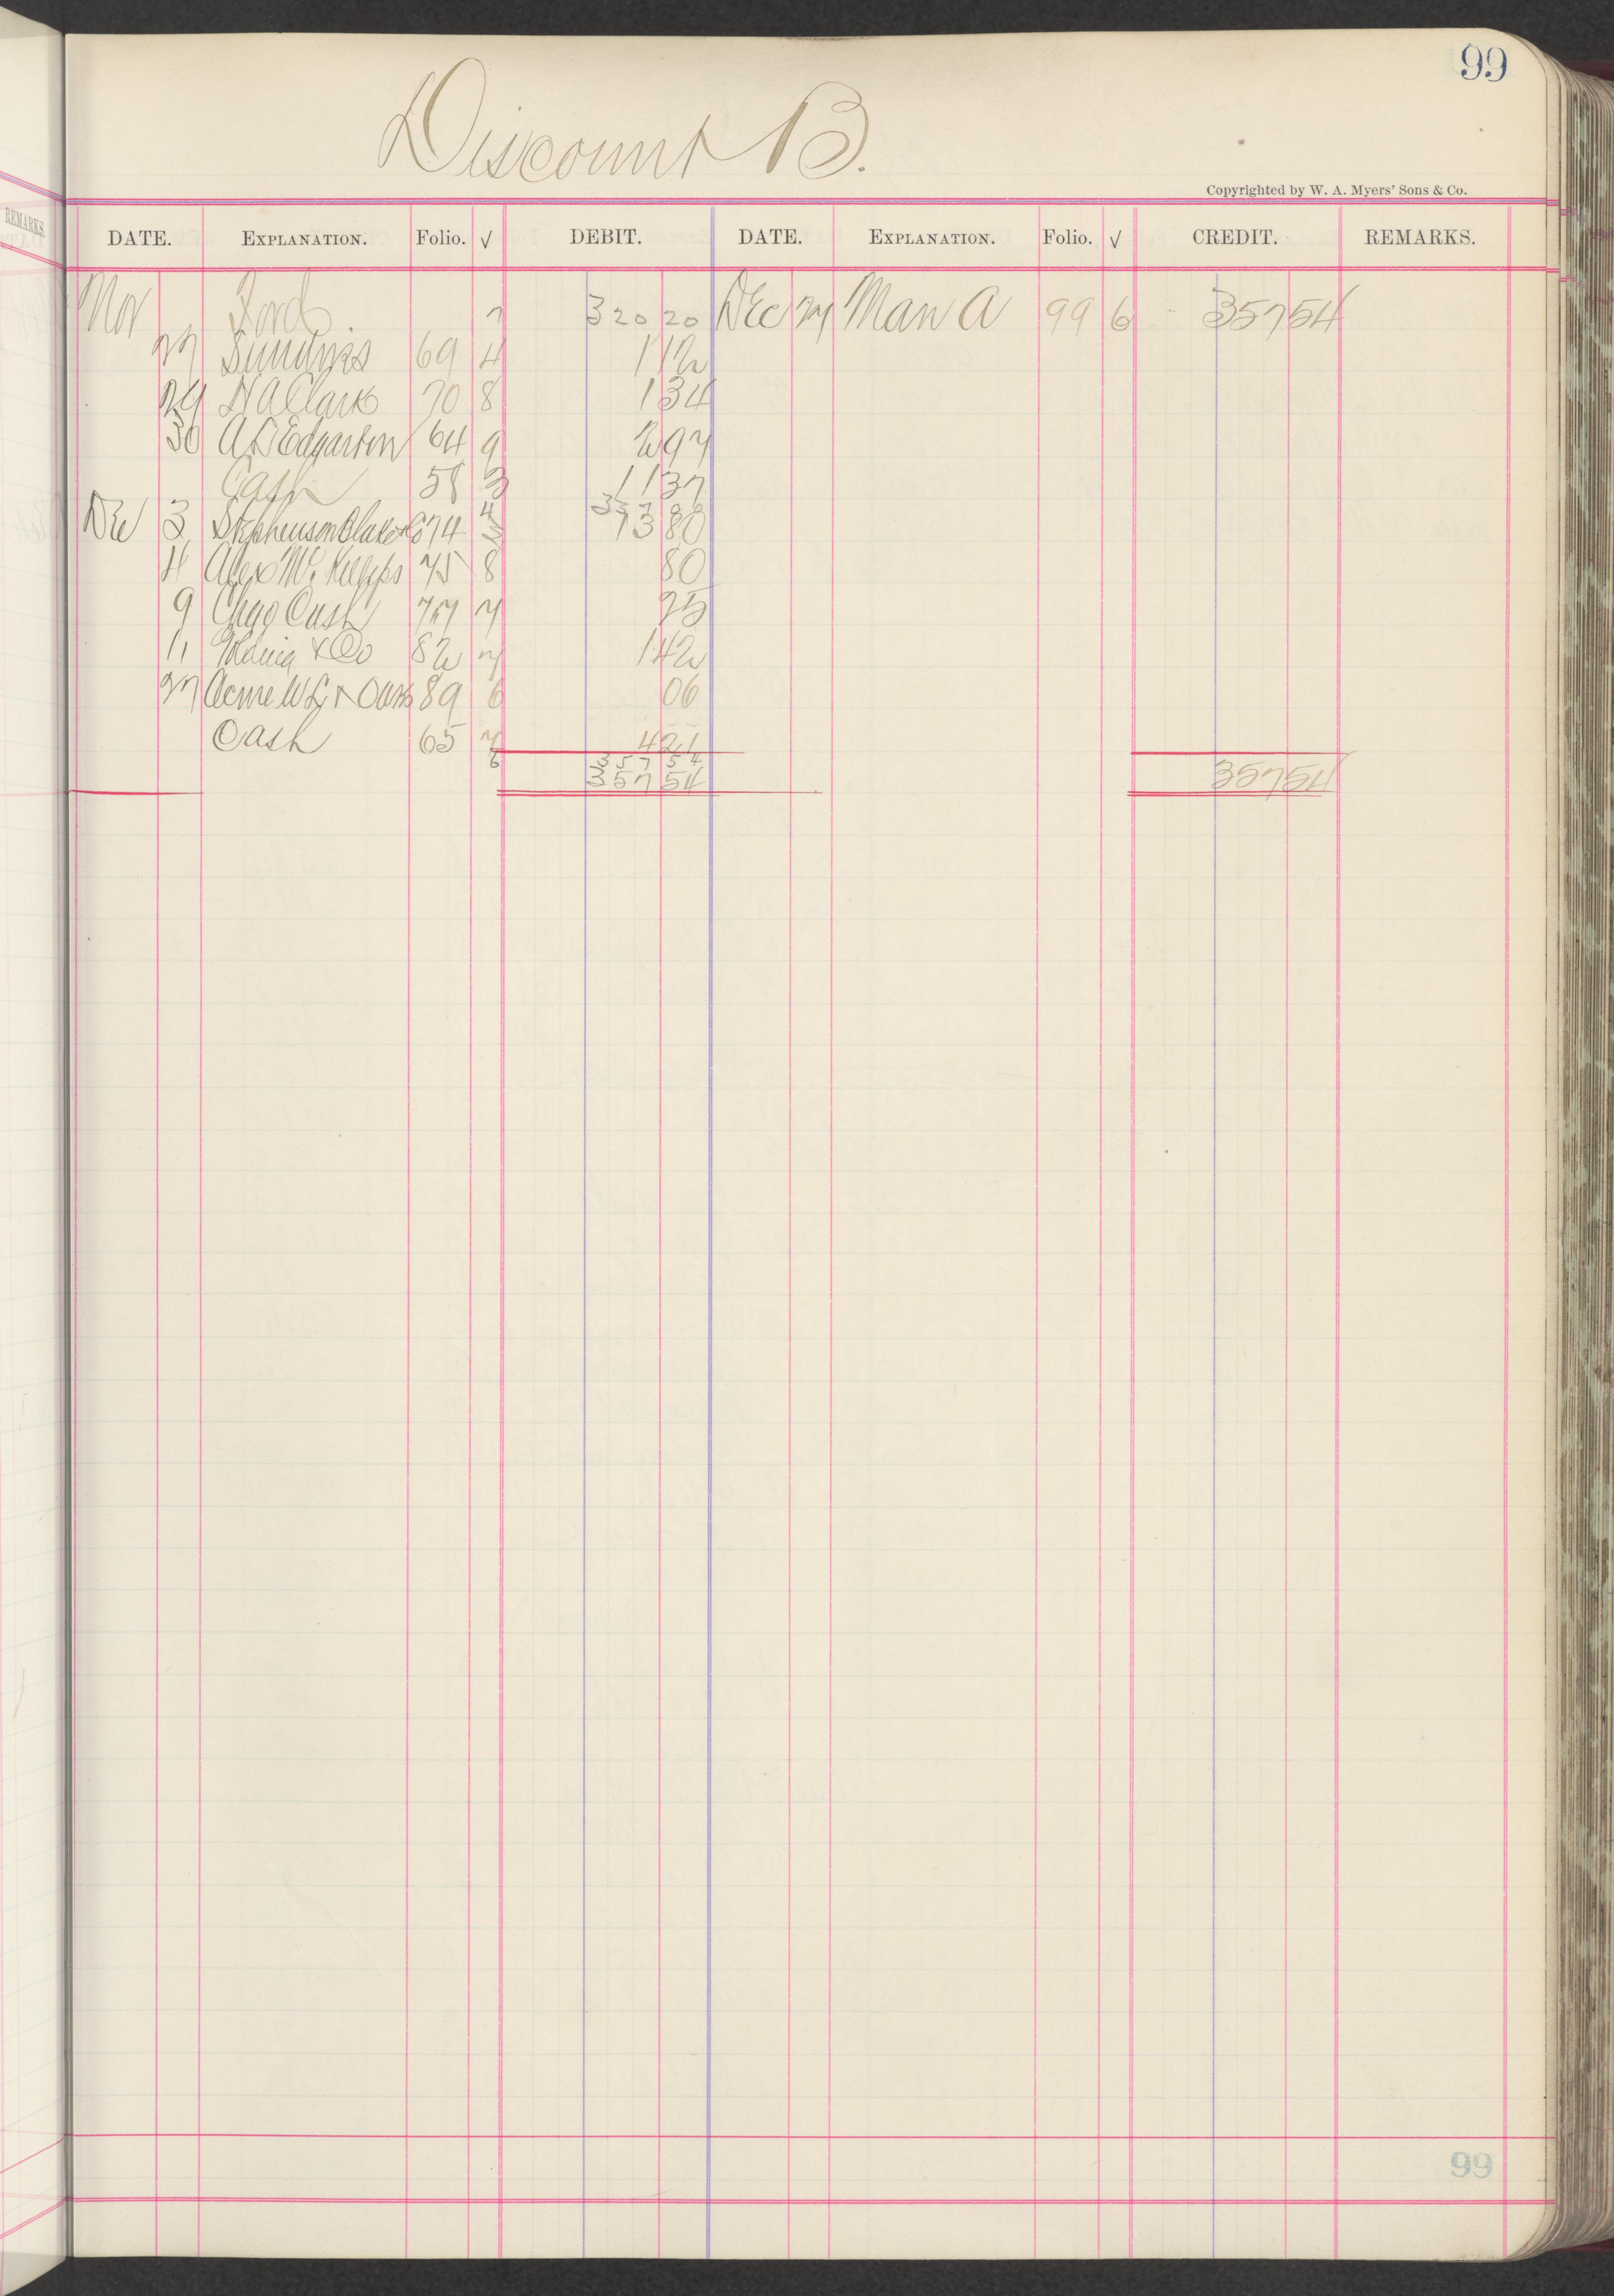 99
Discount B.
Copyrighted by W. A. Myers' Sons & Co.
REMARKS.
DATE. EXPLANATION. Folio. √ DEBIT. DATE. EXPLANATION. Folio. √ CREDIT. REMARKS.
Nov 320 20 Dec Man A 99 6 357 54
27 Sundries 69 4 1 12
29 N A Clark 70 8 1 34
30 Edgarton 64 9 2 97
Cash 58 3 11 37
Dec 3 Stephenson Blake & Co 74 13 80
Alex 75 8 80
9 Chgo Cash 77 7 25
11 & Co 82 7 1 42
27 Acme 89 6 06
Cash 65 7 4 21
357 54
357 54 357 54
99